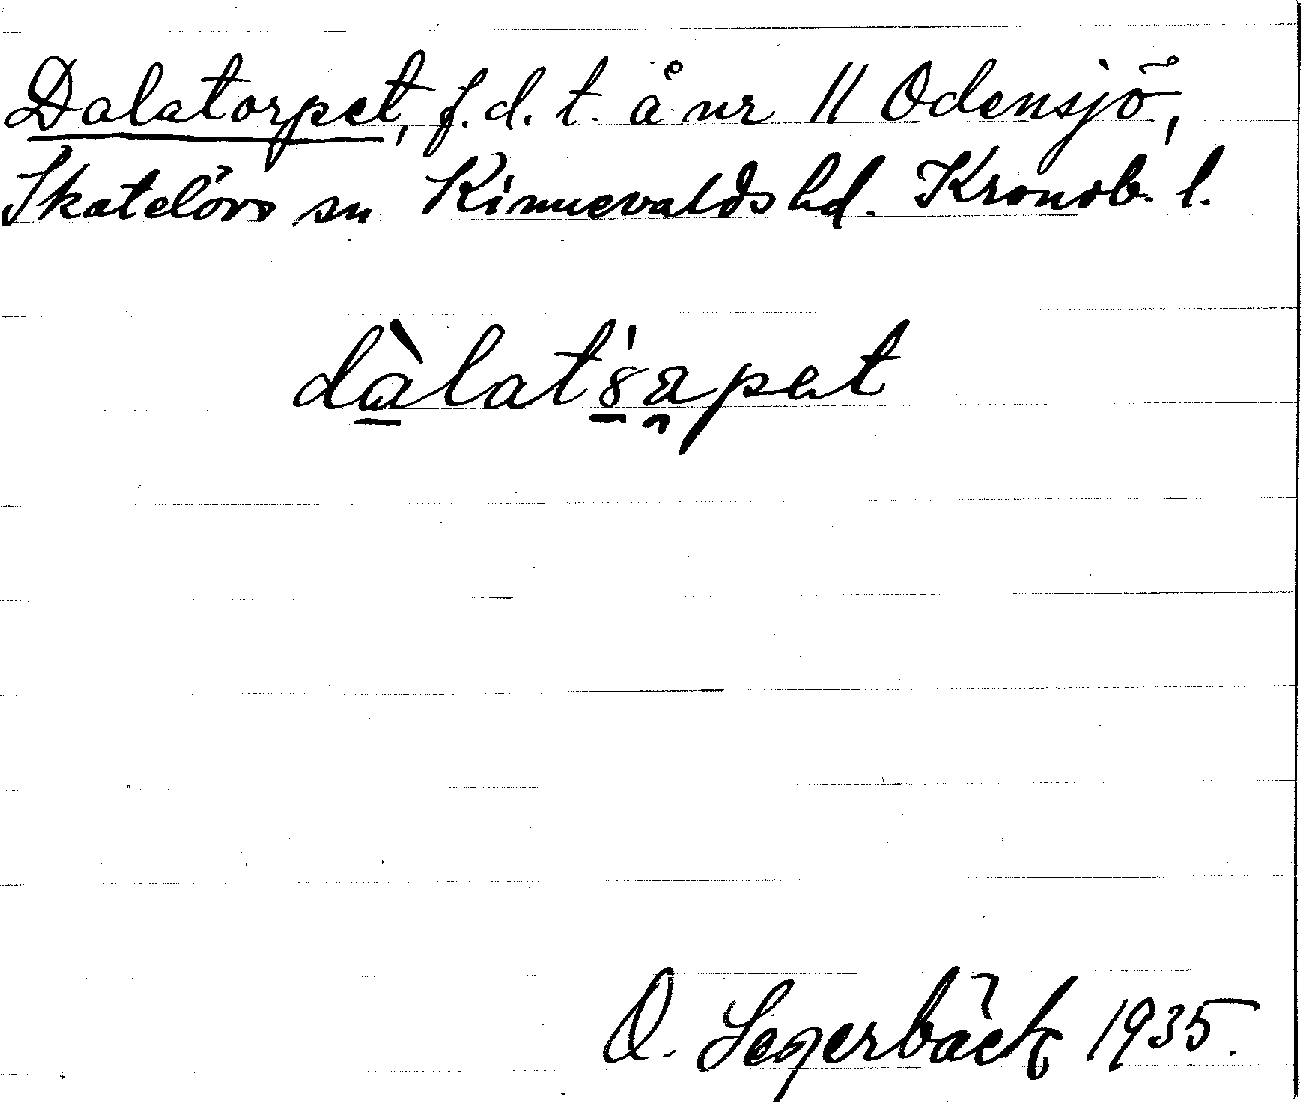 Dalatorpet, f.d. t. å nr 11 Odensjö,
Skatelövs sn Kinnevalds hd. Kronob. l.
O. Segerbäck 1935.